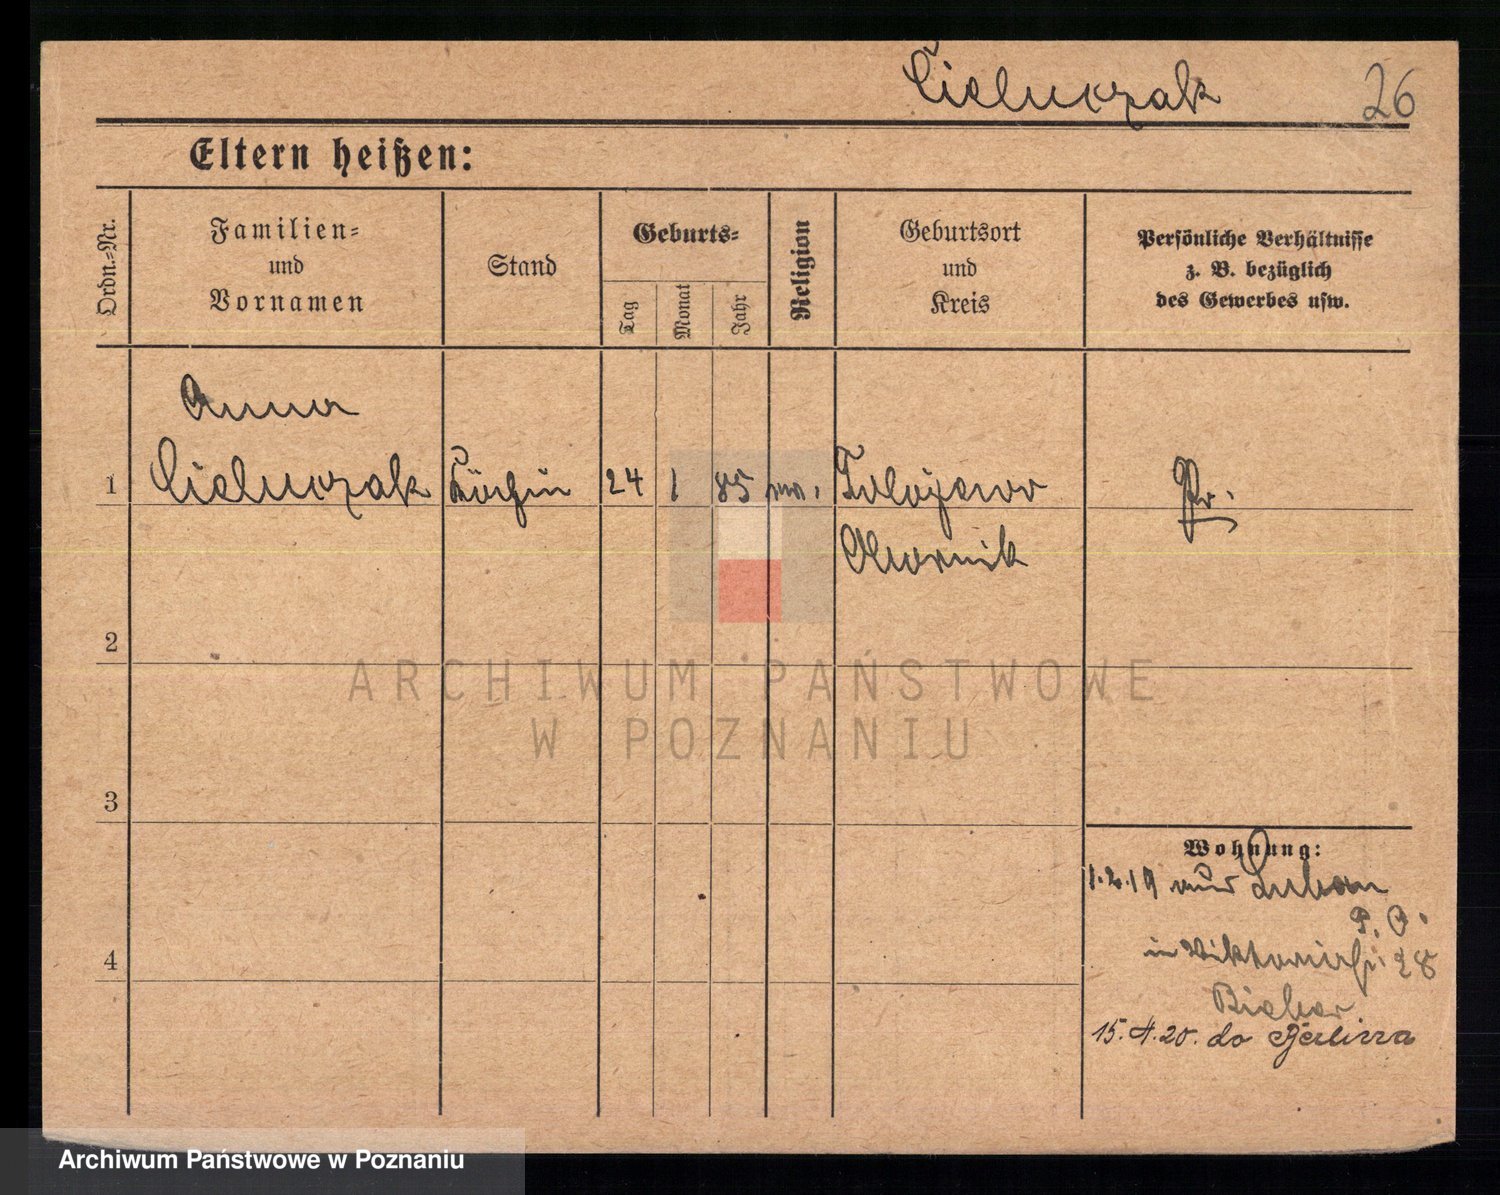 Cieluczak 26
Eltern heißen:
Ordn.-Nr.
Familien- und Vornamen
Stand
Geburts-
Tag
Monat
Jahr
Religion
Geburtsort und Kreis
Persönliche Verhältnisse
z. B. bezüglich
des Gewerbes usw.
Anna
1 Cieluczak Köchin 24 1 85 Pr.
Obornik
2
3
4
Wohnung:
1.2.19 aus Luban
P. O.
in Viktoriastr. 28
Bieber
15.4.20. do Berlina
ARCHIWUM PAŃSTWOWE
W POZNANIU
Archiwum Państwowe w Poznaniu